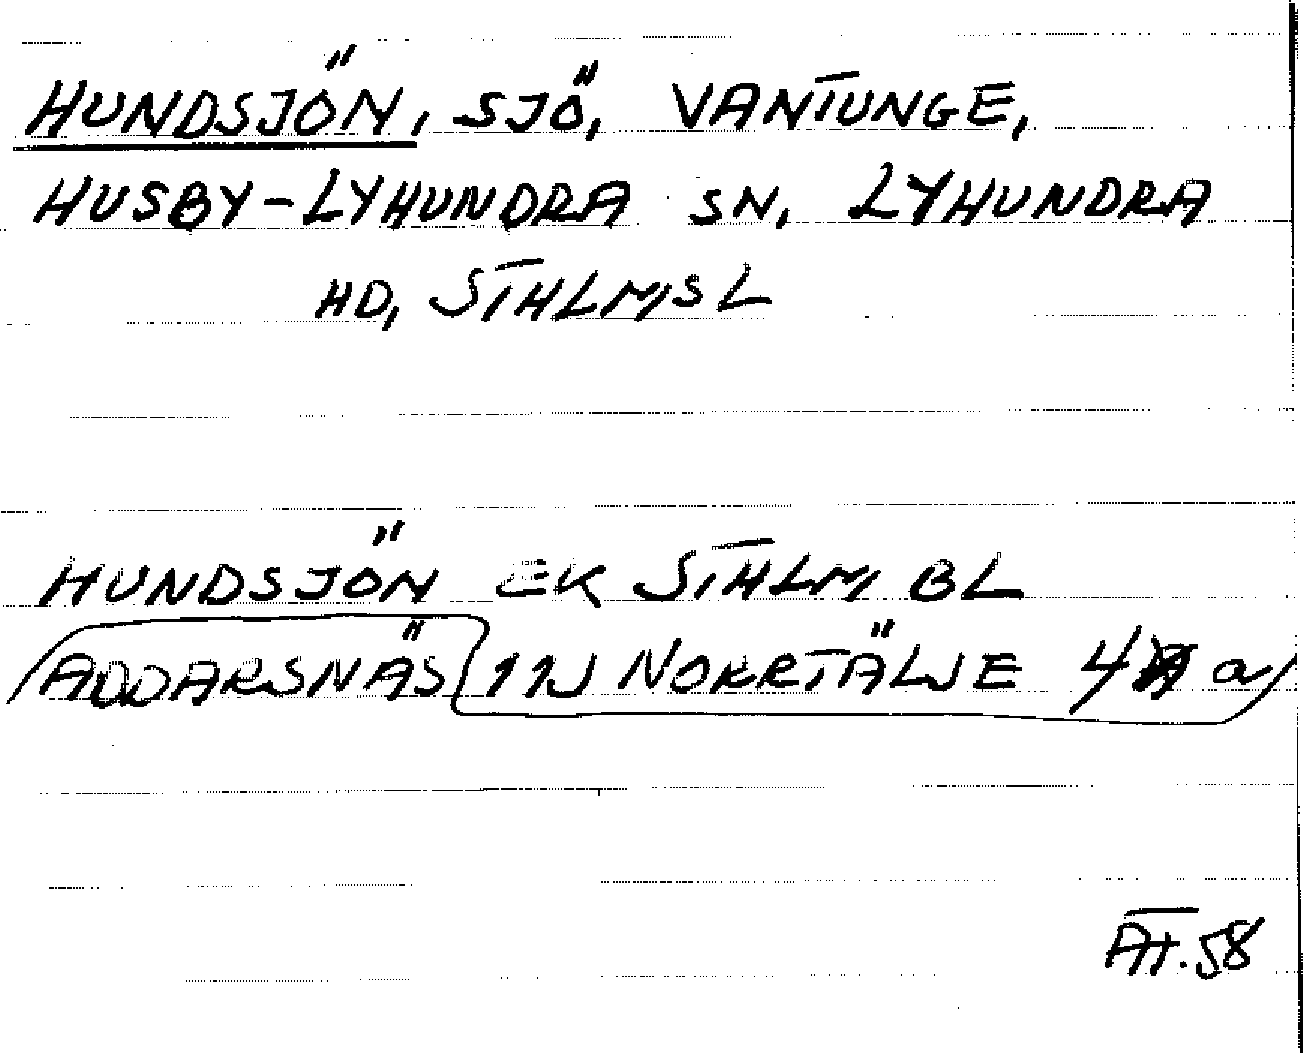 HUNDSJÖN, SJÖ, VANTUNGE,
HUSBY-LYHUNDRA SN, LYHUNDRA
HD, STHLMS L
HUNDSJÖN EK STHLM BL
ADDARSNÄS 11J NORRTÄLJE 4 a
58